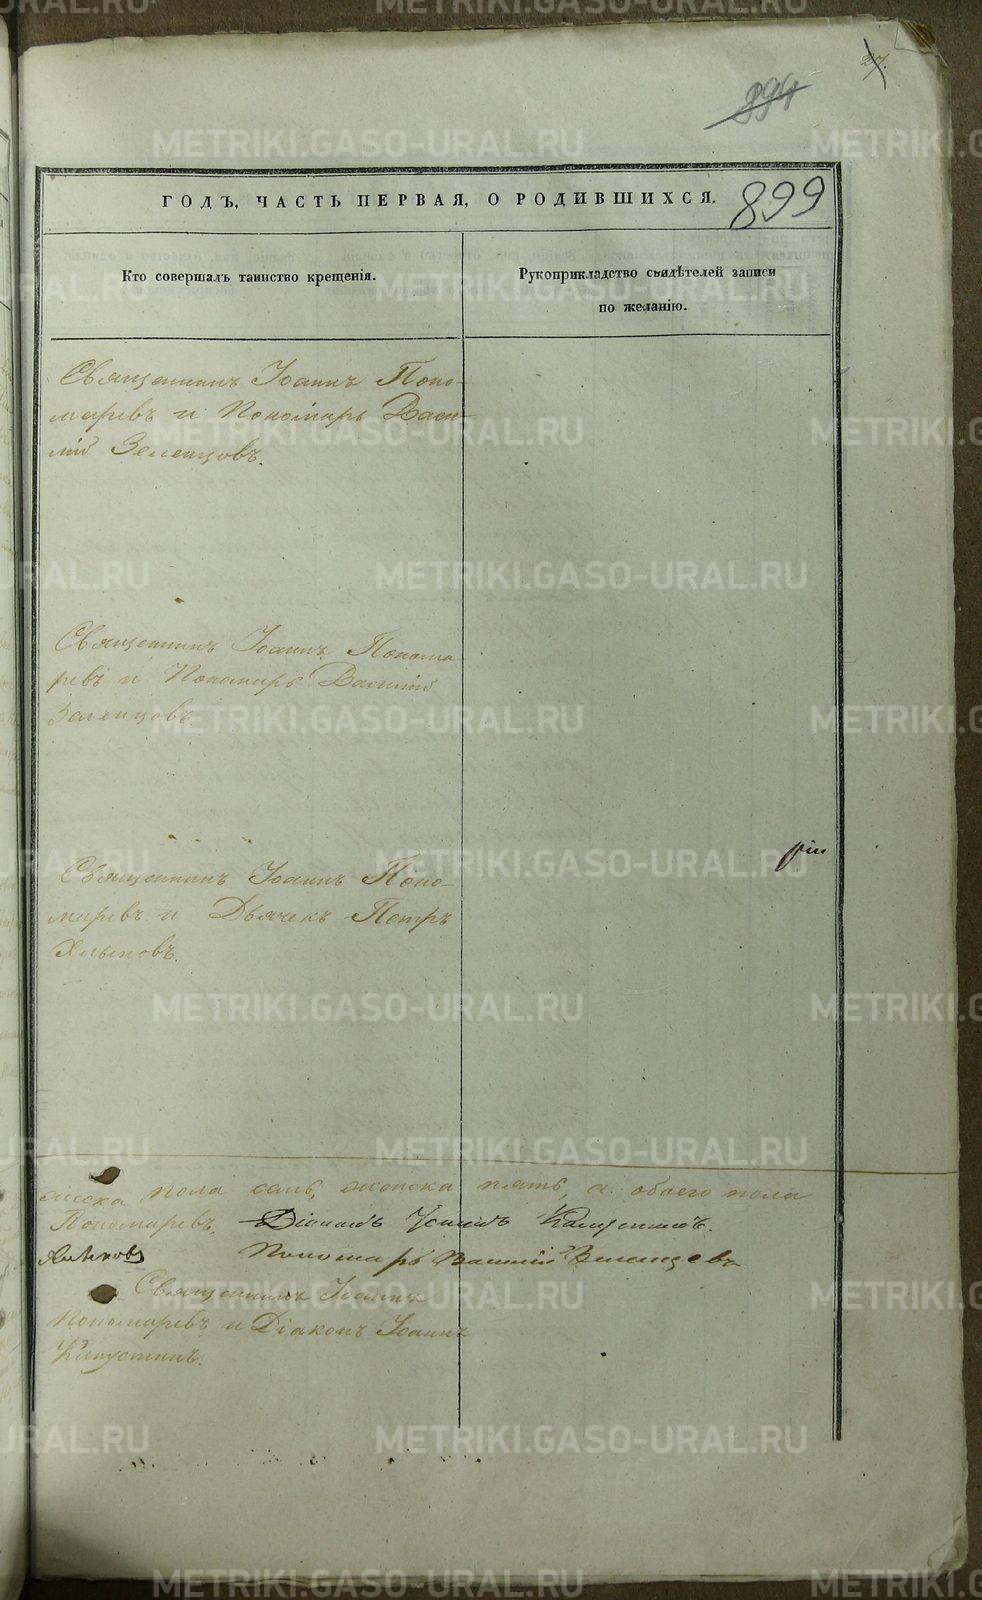 27.
894
ГОДЪ, ЧАСТЬ ПЕРВАЯ, О РОДИВШИХСЯ.
899
Кто совершалъ таинство крещенія.
Рукоприкладство свидѣтелей записи
по желанію.
Священникъ Іоаннъ Поно-
маревъ и Пономарь Васи-
лій Зеленцовъ.
Священникъ Іоаннъ Понома
ревъ и Пономарь Василій
Зеленцовъ.
Священникъ Іоаннъ Поно-
маревъ и Дьячекъ Петръ
Хлыновъ.
пола семь, женска пять, а обоего пола
Пономаревъ, Діаконъ Іоаннъ Капустинъ.
Пономарь Василій Зеленцовъ
Священникъ Іоаннъ
Пономаревъ и Діаконъ Іоаннъ
Капустинъ.
METRIKI.GASO-URAL.RU